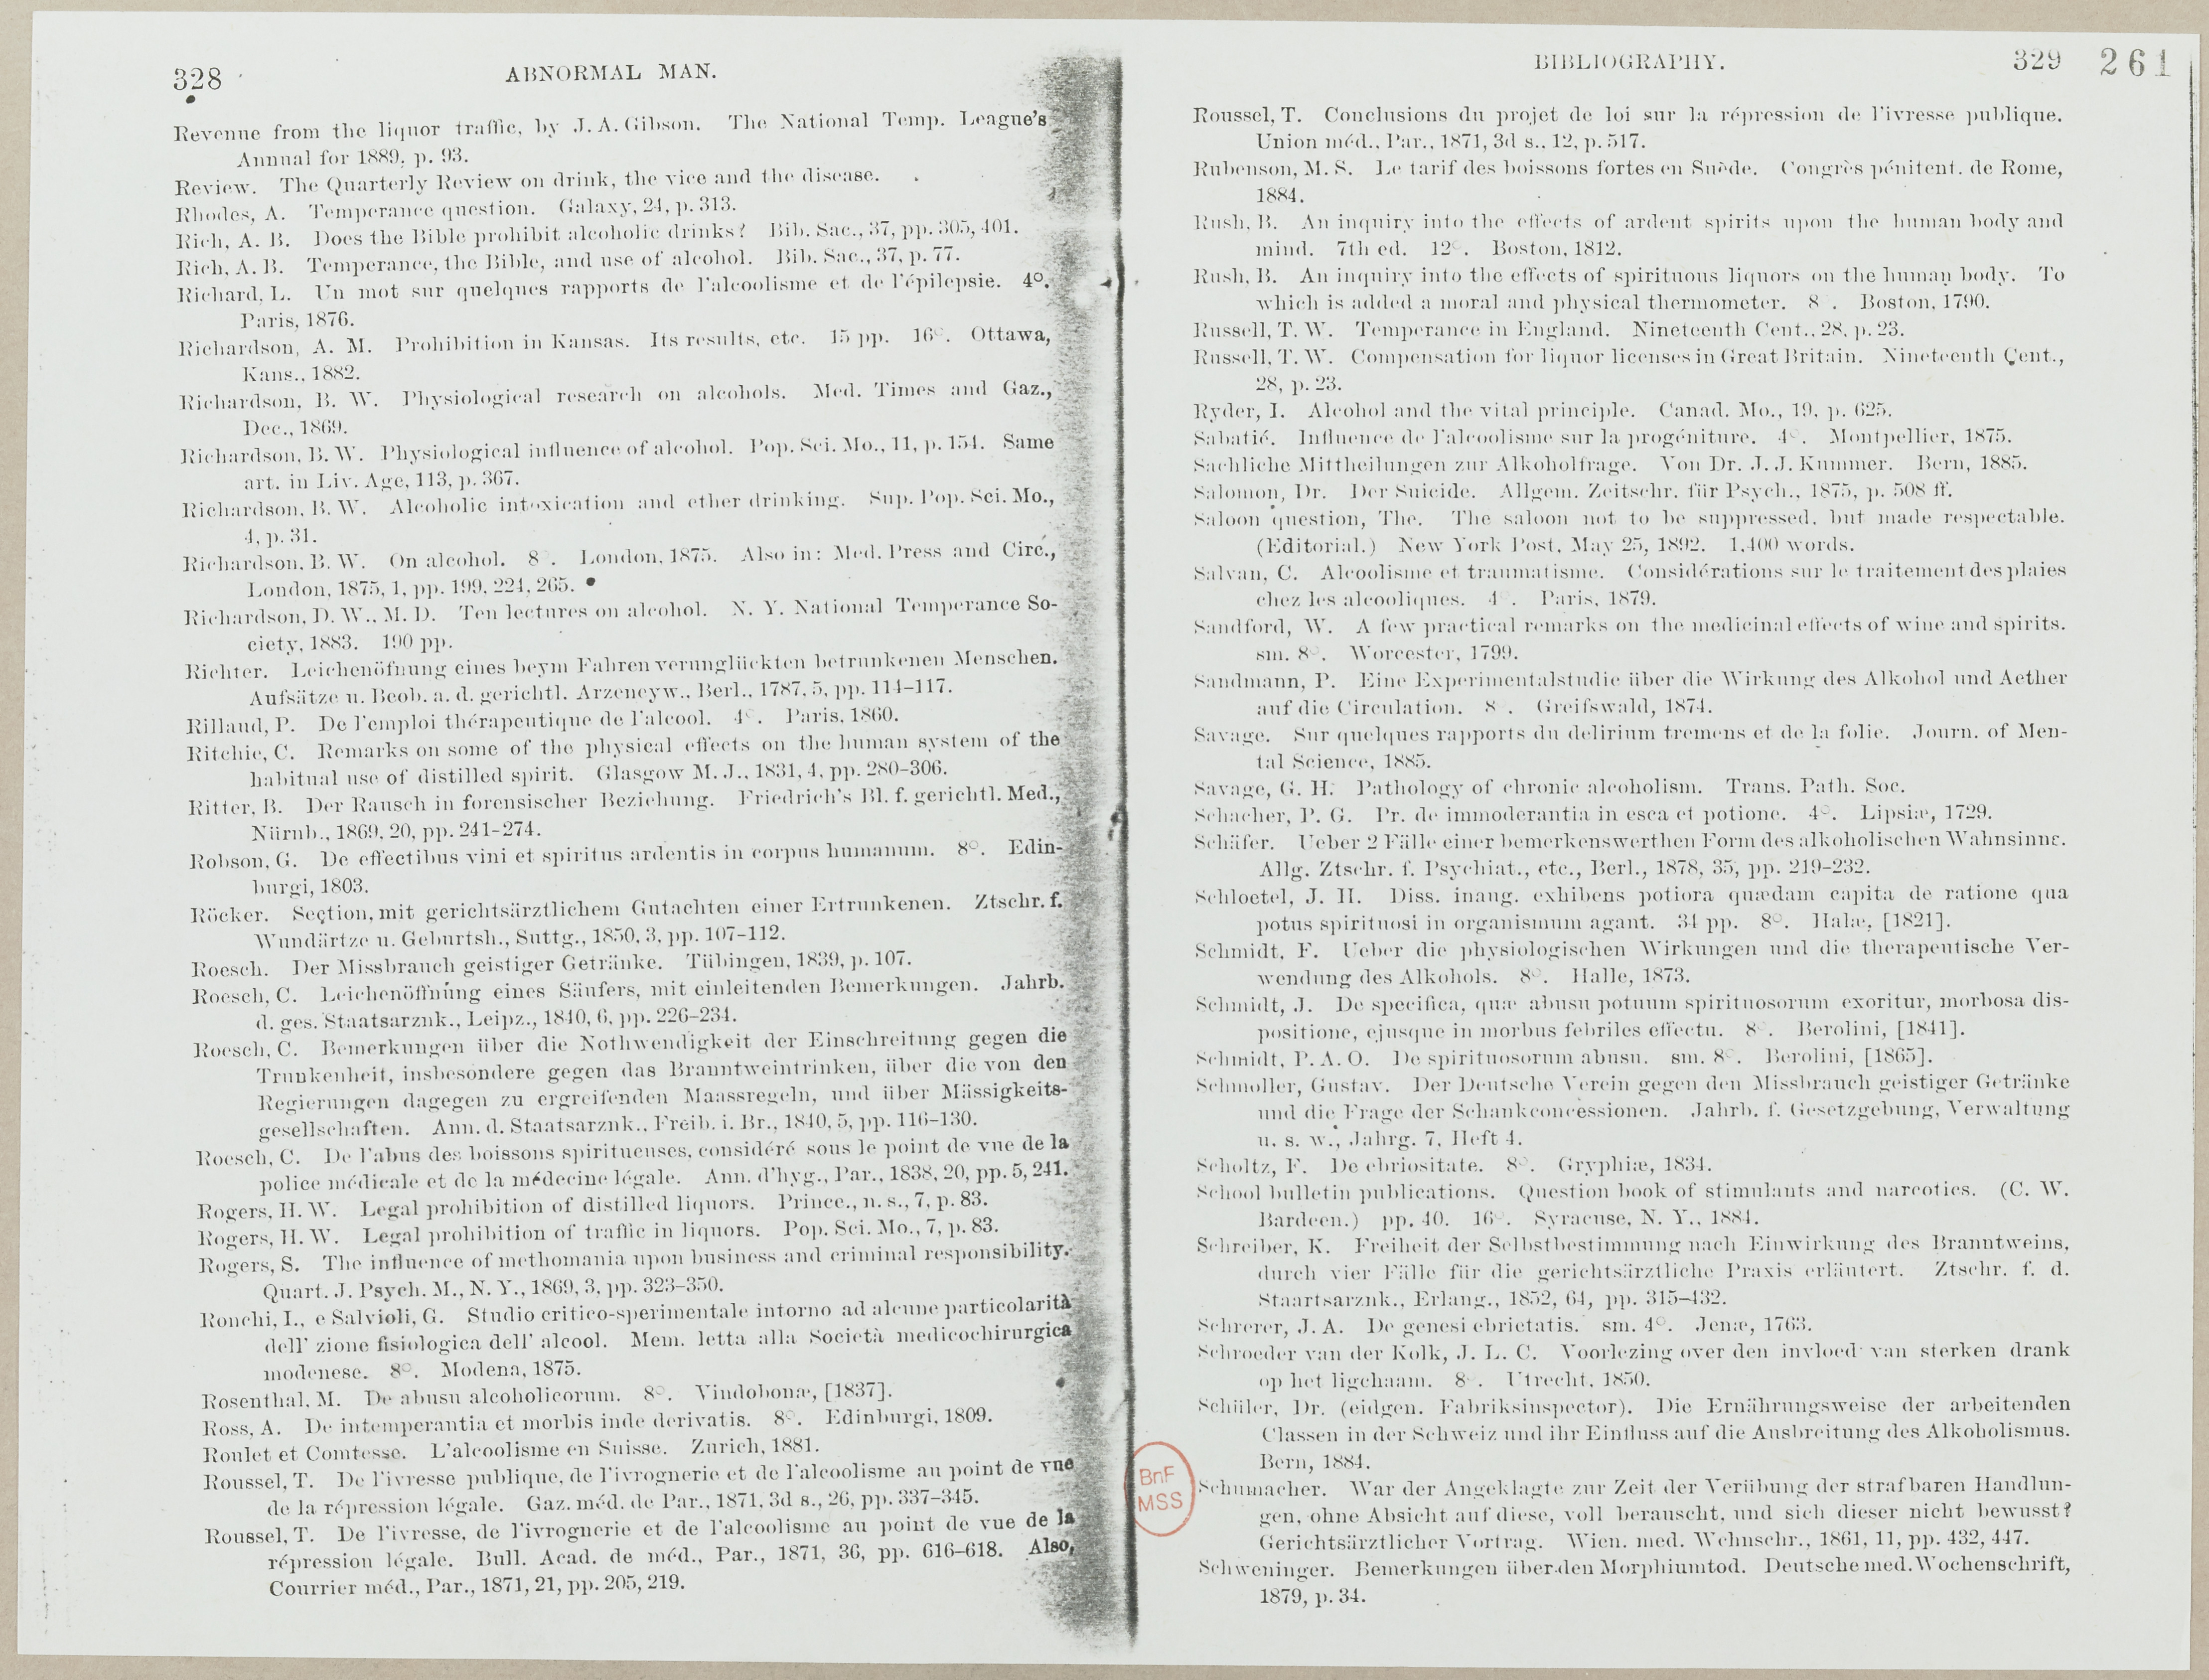 328
ABNORMAL MAN.
Revenue from the liquor traffic, by J. A. Gibson. The National Temp. League's
Annual for 1889, p. 93.
Review. The Quarterly Review on drink, the vice and the disease.
Rhodes, A. Temperance question. Galaxy, 24, p. 313.
Rich, A. B. Does the Bible prohibit alcoholic drinks? Bib. Sac., 37, pp. 305, 401.
Rich, A. B. Temperance, the Bible, and use of alcohol. Bib. Sac., 37, p. 77.
Richard, L. Un mot sur quelques rapports de l'alcoolisme et de l'épilepsie. 4°.
Paris, 1876.
Richardson, A. M. Prohibition in Kansas. Its results, etc. 15 pp. 16°. Ottawa,
Kans., 1882.
Richardson, B. W. Physiological research on alcohols. Med. Times and Gaz.,
Dec., 1869.
Richardson, B. W. Physiological influence of alcohol. Pop. Sci. Mo., 11, p. 154. Same
art. in Liv. Age, 113, p. 367.
Richardson, B. W. Alcoholic intoxication and ether drinking. Sup. Pop. Sci. Mo.,
4, p. 31.
Richardson, B. W. On alcohol. 8°. London, 1875. Also in: Med. Press and Circ.,
London, 1875, 1, pp. 199, 224, 265.
Richardson, D. W., M. D. Ten lectures on alcohol. N. Y. National Temperance So-
ciety, 1883. 190 pp.
Richter. Leichenöfnung eines beym Fahren verunglückten betrunkenen Menschen.
Aufsätze u. Beob. a. d. gerichtl. Arzeneyw., Berl., 1787, 5, pp. 114-117.
Rillaud, P. De l'emploi thérapeutique de l'alcool. 4°. Paris, 1860.
Ritchie, C. Remarks on some of the physical effects on the human system of the
habitual use of distilled spirit. Glasgow M. J., 1831, 4, pp. 280-306.
Ritter, B. Der Rausch in forensischer Beziehung. Friedrich's Bl. f. gerichtl. Med.,
Nürnb., 1869, 20, pp. 241-274.
Robson, G. De effectibus vini et spiritus ardentis in corpus humanum. 8°. Edin-
burgi, 1803.
Röcker. Section, mit gerichtsärztlichem Gutachten einer Ertrunkenen. Ztschr. f.
Wundärtze u. Geburtsh., Suttg., 1850, 3, pp. 107-112.
Roesch. Der Missbrauch geistiger Getränke. Tübingen, 1839, p. 107.
Roesch, C. Leichenöffnung eines Säufers, mit einleitenden Bemerkungen. Jahrb.
d. ges. Staatsarznk., Leipz., 1840, 6, pp. 226-234.
Roesch, C. Bemerkungen über die Nothwendigkeit der Einschreitung gegen die
Trunkenheit, insbesondere gegen das Branntweintrinken, über die von den
Regierungen dagegen zu ergreifenden Maassregeln, und über Mässigkeits-
gesellschaften. Ann. d. Staatsarznk., Freib. i. Br., 1840, 5, pp. 116-130.
Roesch, C. De l'abus des boissons spiritueuses, considéré sous le point de vue de la
police médicale et de la médecine légale. Ann. d'hyg., Par., 1838, 20, pp. 5, 241.
Rogers, H. W. Legal prohibition of distilled liquors. Prince., n. s., 7, p. 83.
Rogers, H. W. Legal prohibition of traffic in liquors. Pop. Sci. Mo., 7, p. 83.
Rogers, S. The influence of methomania upon business and criminal responsibility.
Quart. J. Psych. M., N. Y., 1869, 3, pp. 323-350.
Ronchi, I., e Salvioli, G. Studio critico-sperimentale intorno ad alcune particolarità
dell' zione fisiologica dell' alcool. Mem. letta alla Società medicochirurgica
modenese. 8°. Modena, 1875.
Rosenthal, M. De abusu alcoholicorum. 8°. Vindobonæ, [1837].
Ross, A. De intemperantia et morbis inde derivatis. 8°. Edinburgi, 1809.
Roulet et Comtesse. L'alcoolisme en Suisse. Zurich, 1881.
Roussel, T. De l'ivresse publique, de l'ivrognerie et de l'alcoolisme au point de vue
de la répression légale. Gaz. méd. de Par., 1871, 3d s., 26, pp. 337-345.
Roussel, T. De l'ivresse, de l'ivrognerie et de l'alcoolisme au point de vue de la
répression légale. Bull. Acad. de méd., Par., 1871, 36, pp. 616-618. Also,
Courrier méd., Par., 1871, 21, pp. 205, 219.
BIBLIOGRAPHY.
329
261
Roussel, T. Conclusions du projet de loi sur la répression de l'ivresse publique.
Union méd., Par., 1871, 3d s., 12, p. 517.
Rubenson, M. S. Le tarif des boissons fortes en Suède. Congrès pénitent. de Rome,
1884.
Rush, B. An inquiry into the effects of ardent spirits upon the human body and
mind. 7th ed. 12°. Boston, 1812.
Rush, B. An inquiry into the effects of spirituous liquors on the human body. To
which is added a moral and physical thermometer. 8°. Boston, 1790.
Russell, T. W. Temperance in England. Nineteenth Cent., 28, p. 23.
Russell, T. W. Compensation for liquor licenses in Great Britain. Nineteenth Cent.,
28, p. 23.
Ryder, I. Alcohol and the vital principle. Canad. Mo., 19, p. 625.
Sabatié. Influence de l'alcoolisme sur la progéniture. 4°. Montpellier, 1875.
Sachliche Mittheilungen zur Alkoholfrage. Von Dr. J. J. Kummer. Bern, 1885.
Salomon, Dr. Der Suicide. Allgem. Zeitschr. für Psych., 1875, p. 508 ff.
Saloon question, The. The saloon not to be suppressed, but made respectable.
(Editorial.) New York Post, May 25, 1892. 1,400 words.
Salvan, C. Alcoolisme et traumatisme. Considérations sur le traitement des plaies
chez les alcooliques. 4°. Paris, 1879.
Sandford, W. A few practical remarks on the medicinal effects of wine and spirits.
sm. 8°. Worcester, 1799.
Sandmann, P. Eine Experimentalstudie über die Wirkung des Alkohol und Aether
auf die Circulation. 8°. Greifswald, 1874.
Savage. Sur quelques rapports du delirium tremens et de la folie. Journ. of Men-
tal Science, 1885.
Savage, G. H. Pathology of chronic alcoholism. Trans. Path. Soc.
Schacher, P. G. Pr. de immoderantia in esca et potione. 4°. Lipsiæ, 1729.
Schäfer. Ueber 2 Fälle einer bemerkenswerthen Form des alkoholischen Wahnsinns.
Allg. Ztschr. f. Psychiat., etc., Berl., 1878, 35, pp. 219-232.
Schloetel, J. H. Diss. inaug. exhibens potiora quædam capita de ratione qua
potus spirituosi in organismum agant. 34 pp. 8°. Halæ, [1821].
Schmidt, F. Ueber die physiologischen Wirkungen und die therapeutische Ver-
wendung des Alkohols. 8°. Halle, 1873.
Schmidt, J. De specifica, quæ abusu potuum spirituosorum exoritur, morbosa dis-
positione, ejusque in morbus febriles effectu. 8°. Berolini, [1841].
Schmidt, P. A. O. De spirituosorum abusu. sm. 8°. Berolini, [1865].
Schmoller, Gustav. Der Deutsche Verein gegen den Missbrauch geistiger Getränke
und die Frage der Schankconcessionen. Jahrb. f. Gesetzgebung, Verwaltung
u. s. w., Jahrg. 7, Heft 4.
Scholtz, F. De ebriositate. 8°. Gryphiæ, 1834.
School bulletin publications. Question book of stimulants and narcotics. (C. W.
Bardeen.) pp. 40. 16°. Syracuse, N. Y., 1884.
Schreiber, K. Freiheit der Selbstbestimmung nach Einwirkung des Branntweins,
durch vier Fälle für die gerichtsärztliche Praxis erläutert. Ztschr. f. d.
Staartsarznk., Erlang., 1852, 64, pp. 315-432.
Schrerer, J. A. De genesi ebrietatis. sm. 4°. Jenæ, 1763.
Schroeder van der Kolk, J. L. C. Voorlezing over den invloed van sterken drank
op het ligchaam. 8°. Utrecht, 1850.
Schüler, Dr. (eidgen. Fabriksinspector). Die Ernährungsweise der arbeitenden
Classen in der Schweiz und ihr Einfluss auf die Ausbreitung des Alkoholismus.
Bern, 1884.
Schumacher. War der Angeklagte zur Zeit der Verübung der strafbaren Handlun-
gen, ohne Absicht auf diese, voll berauscht, und sich dieser nicht bewusst?
Gerichtsärztlicher Vortrag. Wien. med. Wchnschr., 1861, 11, pp. 432, 447.
Schweninger. Bemerkungen über den Morphiumtod. Deutsche med. Wochenschrift,
1879, p. 34.
BnF
MSS